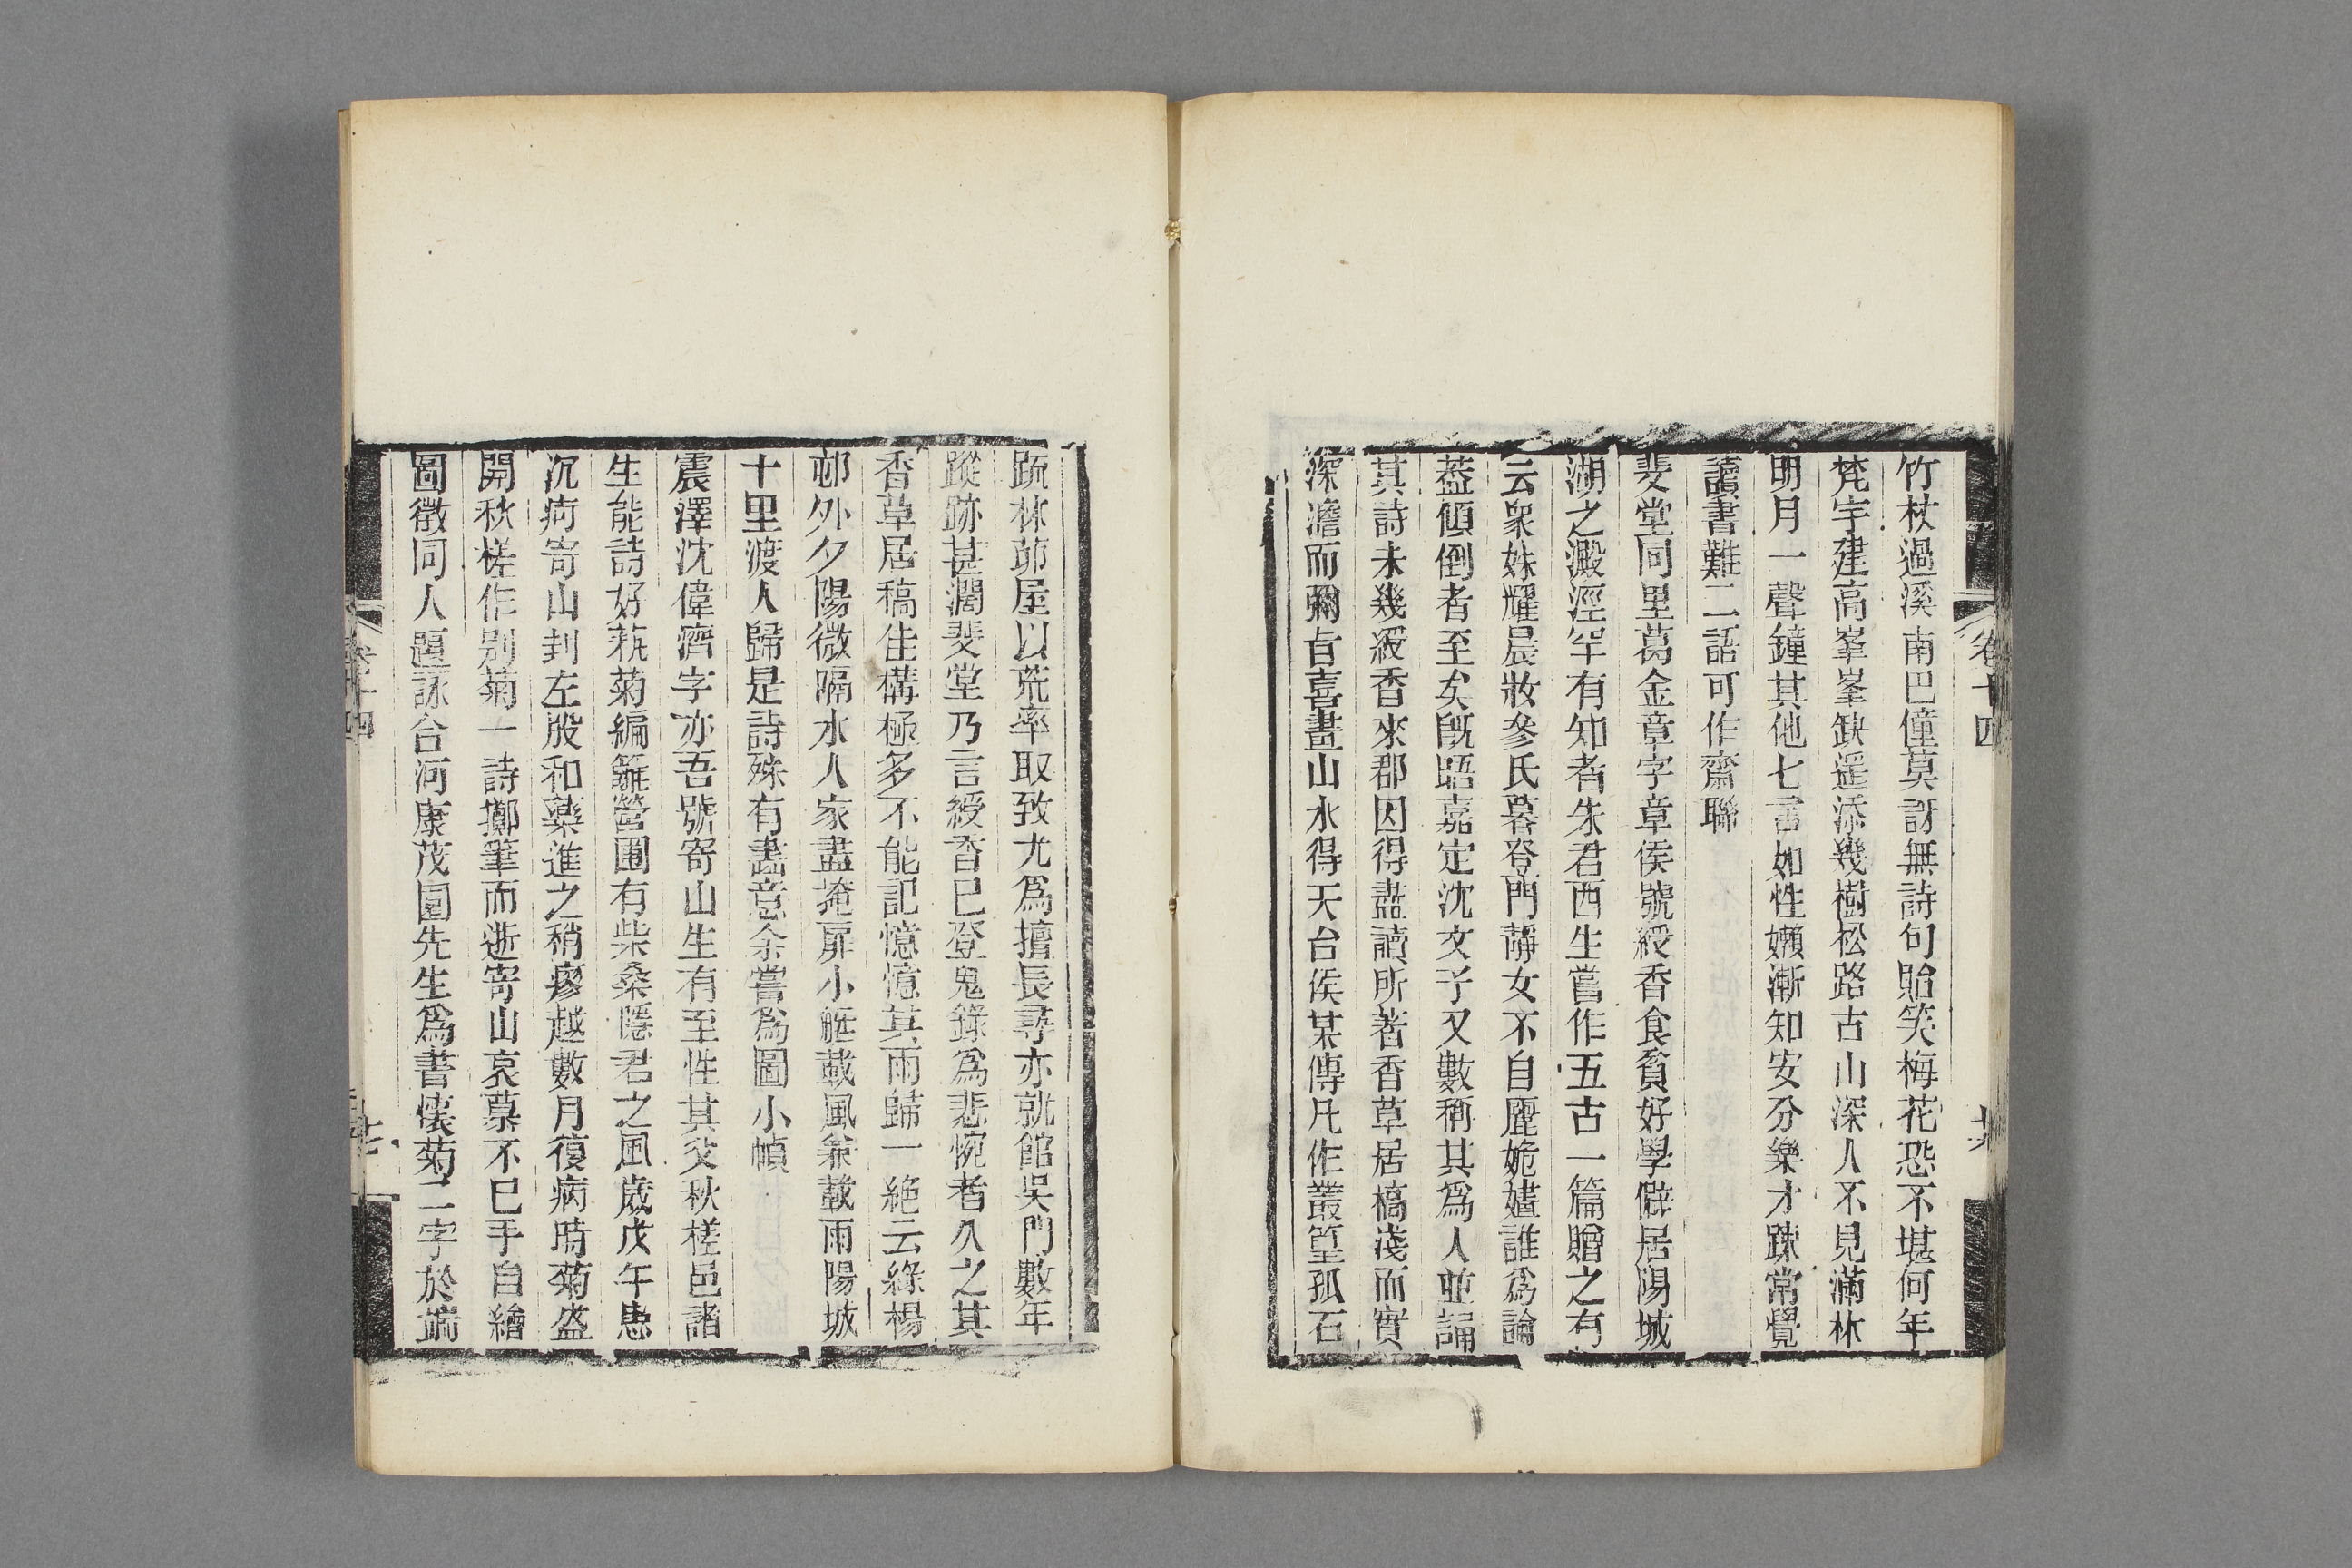 卷十四
竹杖過溪南巴僮莫訝無詩句貽笑梅花恐不堪何年
梵宇建高峯峯缺遥添幾樹松路古山深人不見滿林
明月一聲鐘其他七言如性嬾漸知安分樂才疎常覺
讀書難二語可作齋聯
斐堂同里葛金章字章侯號綬香食貧好學僻居陽城
湖之澱涇罕有知者朱君酉生嘗作五古一篇贈之有
云衆姝耀晨妝參氏暮登門靜女不自麗姽嫿誰爲論
葢傾倒者至矣旣晤嘉定沈文子又數稱其爲人並誦
其詩未幾綬香來郡因得盡讀所著香草居槁淺而實
深澹而彌旨喜畫山水得天台侯某傳凡作叢篁孤石
疏林茆屋以荒率取致尤爲擅長尋亦就館吳門數年
蹤跡甚濶斐堂乃言綬香已登鬼錄爲悲惋者久之其
香草居稿佳構極多不能記憶憶其雨歸一絶云綠楊
邨外夕陽微隔水人家盡掩扉小艇載風兼載雨陽城
十里渡人歸是詩殊有畵意余嘗爲圖小幀
震澤沈偉濟字亦吾號寄山生有至性其父秋槎邑諸
生能詩好蓺菊編籬營圃有柴桑隱君之風歲戊午患
沉疴寄山刲左股和藥進之稍瘳越數月復病時菊盛
開秋槎作別菊一詩擲筆而逝寄山哀慕不已手自繪
圖徵同人題詠合河康茂園先生爲書懷菊二字於端